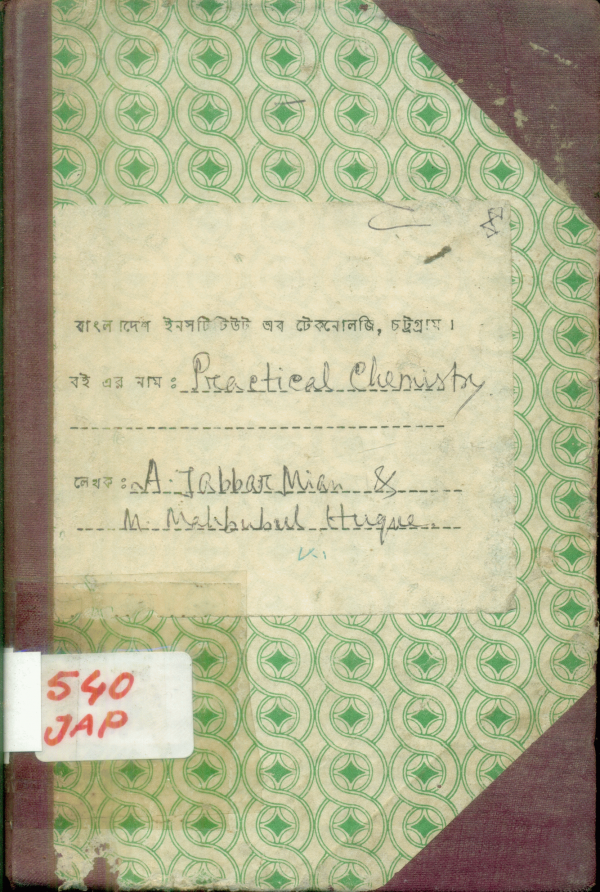 বাংলাদেশ ইনসটিটিউট অব টেকনোলজি, চট্টগ্রাম।
বই এর নাম : Practical Chemistry
লেখক : A. Jabbar Mian &
M. Mahbubul Huque
540
JAP